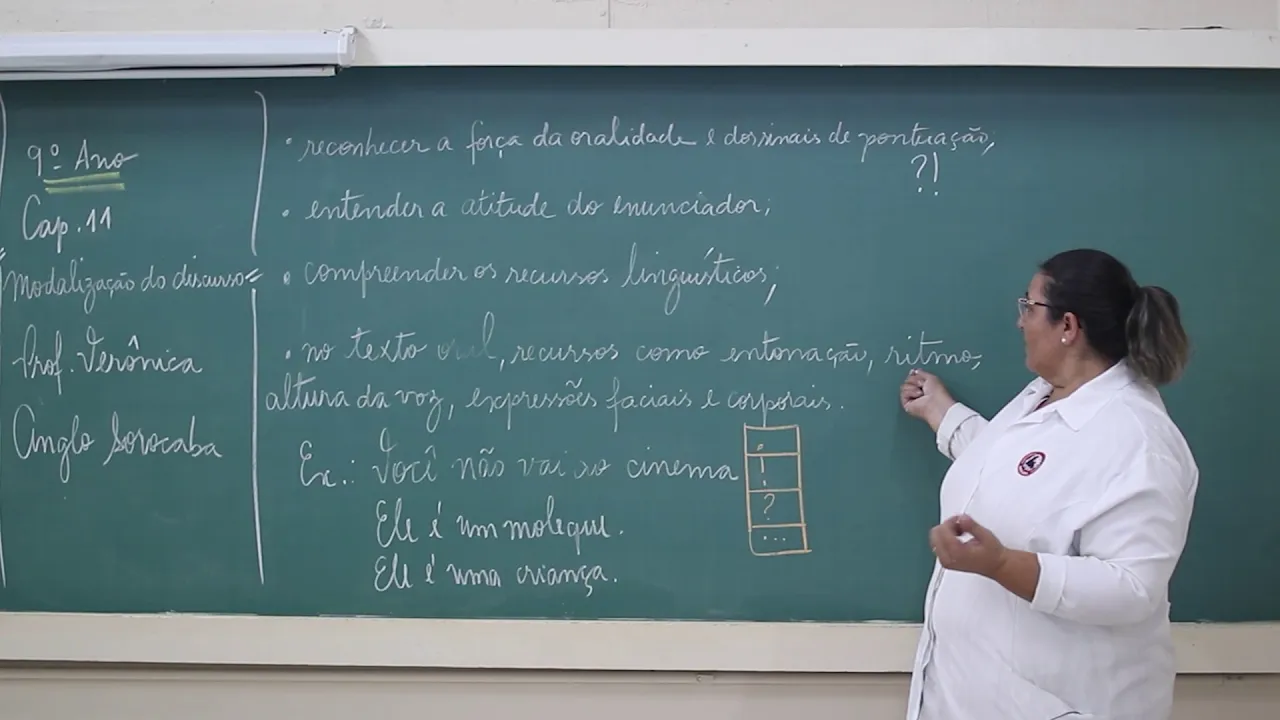 9º Ano
Cap. 11
Modalização do discurso
Prof. Verônica
Anglo Sorocaba
• reconhecer a força da oralidade e dos sinais de pontuação;
?!
• entender a atitude do enunciador;
• compreender os recursos linguísticos;
• no texto oral, recursos como entonação, ritmo,
altura da voz, expressões faciais e corporais.
Ex.: Você não vai ao cinema
.
!
?
...
Ele é um moleque.
Ele é uma criança.